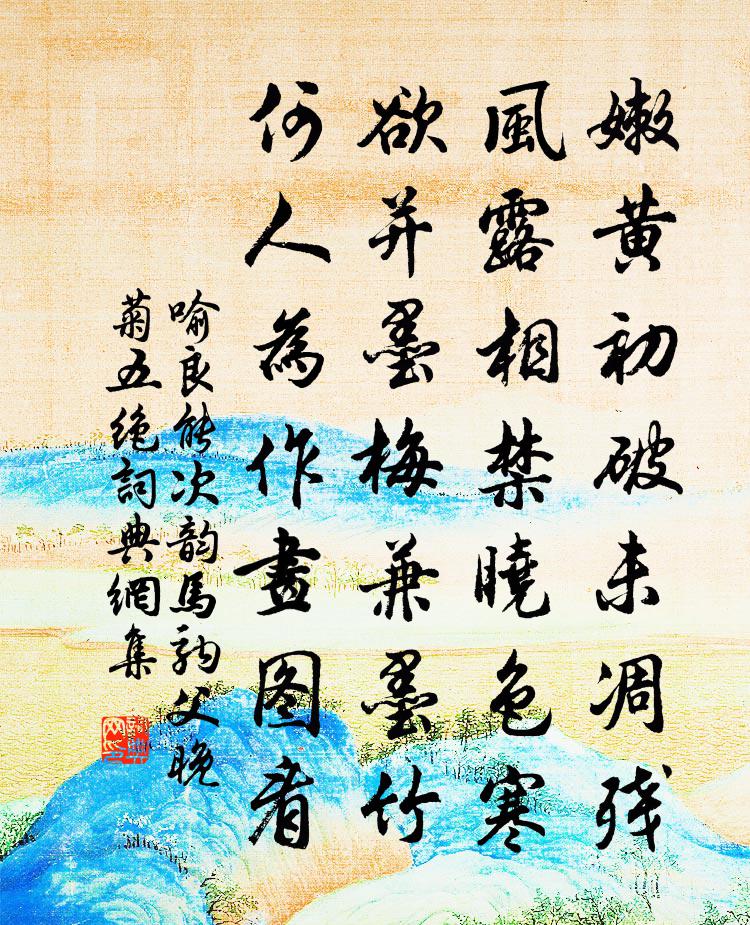 嫩黄初破未凋残
風露相禁曉色寒
欲并墨梅兼墨竹
何人為作畫图看
喻良能次韵馬駒父晚
菊五绝詞典網集